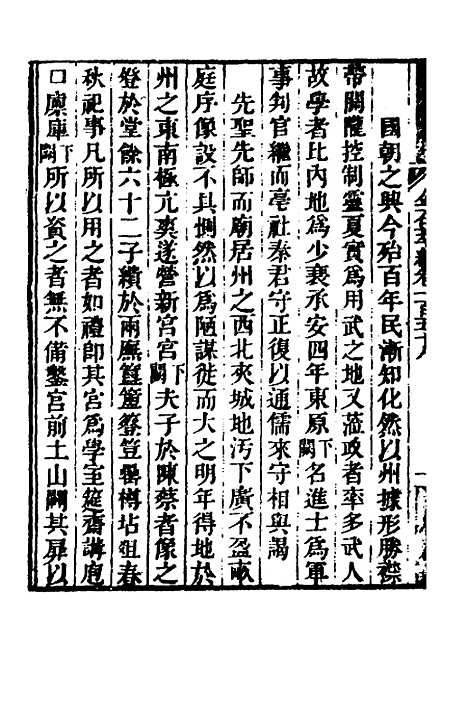 國朝之興今殆百年民漸知化然以州據形勝襟
帶關隴控制靈夏實爲用武之地又蒞政者率多武人
故學者比内地爲少衰承安四年東原下闕名進士爲軍
事判官繼而亳社秦君守正復以通儒來守相與謁
先聖先師而廟居州之西北夾城地汚下廣不盈畝
庭序像設不具惻然以爲陋謀徙而大之明年得地於
州之東南極亢爽遂營新宮宮下闕夫子於陳蔡者像之
登於堂餘六十二子繢於兩廡簠簋登豆罍樽坫俎春
秋祀事凡所以用之者如禮即其宮爲學室筵齋講庖
口廩庫下闕所以資之者無不備鑿宮前土山闢其扉以